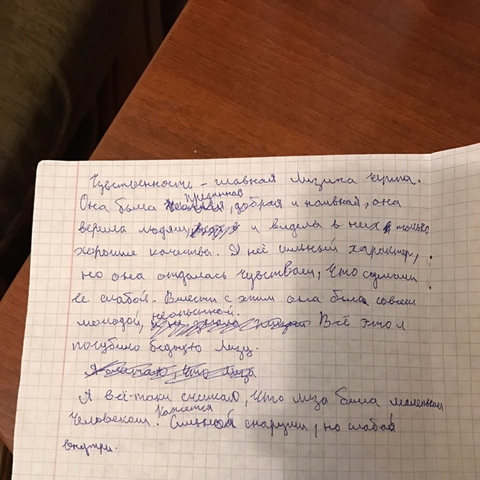 Чувственность – главная Лизина черта.
Она была преданная, добрая и наивная, она
верила людям, и видела в них только
хорошие качества. У неё сильный характер,
но она отдалась чувствам, что сделали
её слабой. Вместе с этим она была совсем
молодой, неопытной. Всё это и
погубило бедную Лизу.
Я считаю, что Лиза
Я всё-таки считаю, что Лиза была маленьким
человеком. Кажется сильной снаружи, но слабой
внутри.